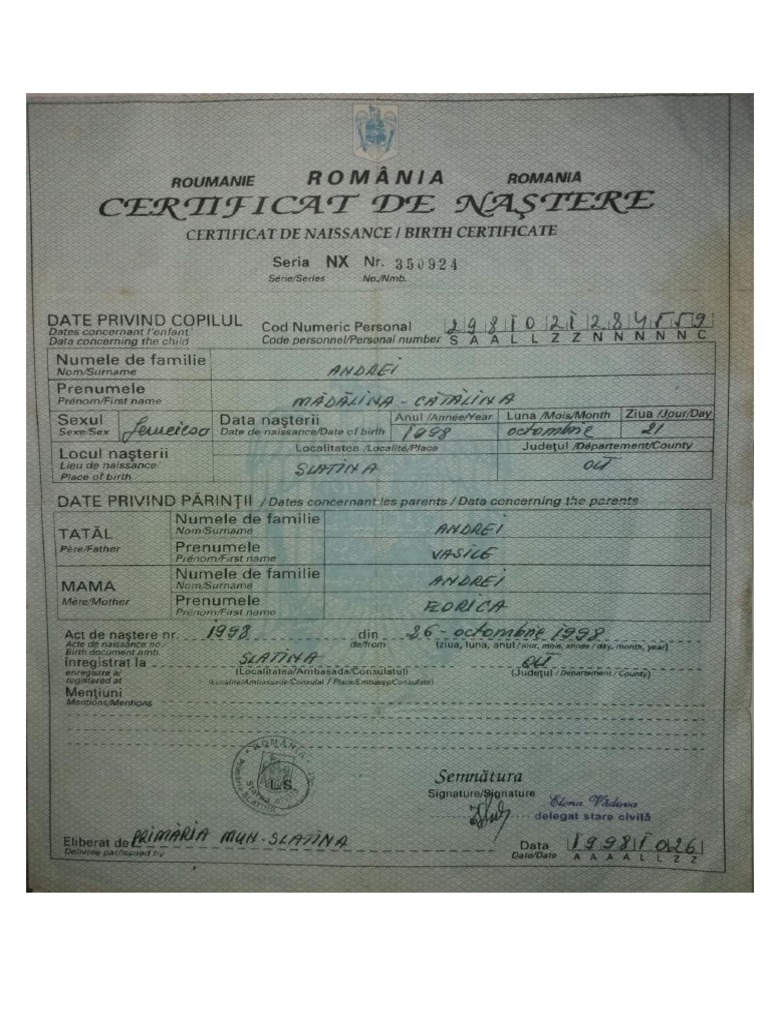 ROUMANIE ROMÂNIA ROMANIA
CERTIFICAT DE NAȘTERE
CERTIFICAT DE NAISSANCE / BIRTH CERTIFICATE
Seria NX Nr. 350924
Série/Series No./Nmb.
DATE PRIVIND COPILUL
Dates concernant l'enfant
Data concerning the child
Cod Numeric Personal 2981021284559
Code personnel/Personal number S A A L L Z Z N N N N N C
Numele de familie ANDREI
Nom/Surname
Prenumele MĂDĂLINA-CĂTĂLINA
Prénom/First name
Sexul Data nașterii Anul /Année/Year Luna /Mois/Month Ziua /Jour/Day
Sexe/Sex Date de naissance/Date of birth 1998 octombrie 21
Locul nașterii Localitatea /Localité/Place Județul /Département/County
Lieu de naissance SLATINA OLT
Place of birth
DATE PRIVIND PĂRINȚII / Dates concernant les parents / Data concerning the parents
TATĂL Numele de familie ANDREI
Père/Father Nom/Surname
Prenumele VASILE
Prénom/First name
MAMA Numele de familie ANDREI
Mère/Mother Nom/Surname
Prenumele FLORICA
Prénom/First name
Act de naștere nr. 1998 din 26-octombrie 1998
Acte de naissance no. de/from (ziua, luna, anul / jour, mois, année / day, month, year)
Birth document nmb.
înregistrat la SLATINA OLT
enregistré à/ (Localitatea/Ambasada/Consulatul) (Județul / Département / County)
registered at (Localité/Ambassade/Consulat / Place/Embassy/Consulate)
Mențiuni
Mentions/Mentions
ROMÂNIA
L.S.
SLATINA
Semnătura
Signature/Signature
Elena Văduva
delegat stare civilă
Eliberat de PRIMĂRIA MUN-SLATINA
Délivrée par/Issued by
Data 19981026
Date/Date A A A A L L Z Z